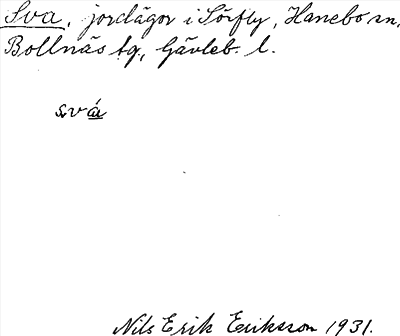 Sva, jordägor i Sörfly, Hanebo sn,
Bollnäs tg, Gävleb. l.
svá
Nils Erik Eriksson 1931.